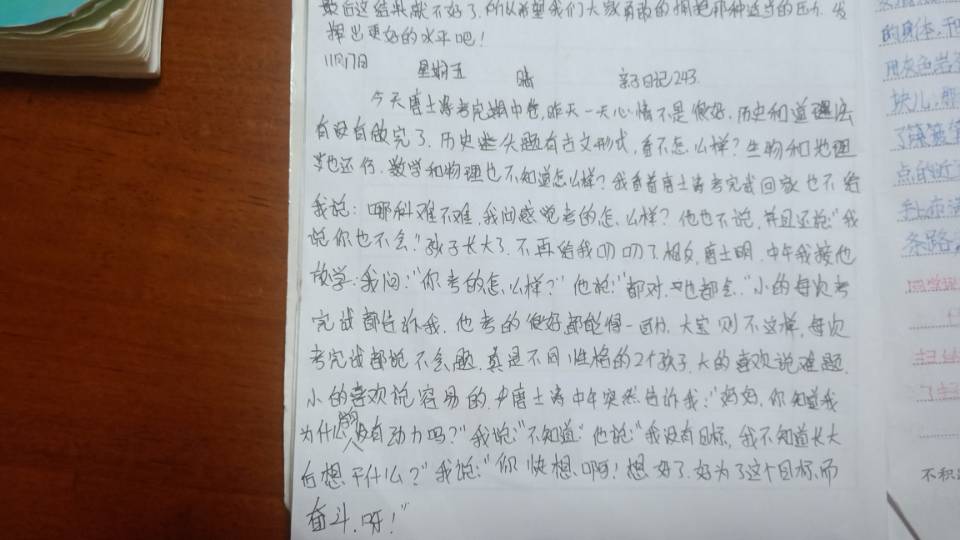 最后这结果就不好了,所以希望我们大家勇敢的拥抱那种适当的压力,发
挥出更好的水平吧!
11月17日 星期五 晴 亲子日记243
今天唐士涛考完期中考,昨天一天心情不是很好,历史和道理法
有没有做完了,历史些大题有古文形式,看不怎么样?生物和地理
也还行,数学和物理也不知道怎么样?我看着唐士涛考完试回家也不给
我说:哪科难不难,我问感觉考的怎么样?他也不说,并且还说:“我
说你也不会!”孩子长大了,不再给我叨叨了,相反,唐士明,中午我接他
放学,我问:“你考的怎么样?”他说:“都对,也都会.”小的每次考
完试都告诉我,他考的很好,都能得一百分,大宝则不这样,每次
考完试都说不会题,真是不同性格的2个孩子,大的喜欢说难题,
小的喜欢说容易的,唐士涛中午突然告诉我:“妈妈,你知道我
为什么没有动力吗?”我说:“不知道.”他说:“我没有目标,我不知道长大
后想干什么?”我说:“你快想啊!想好了,好为了这个目标而
奋斗呀!”
的身体,
块儿,
点的
条路
不积